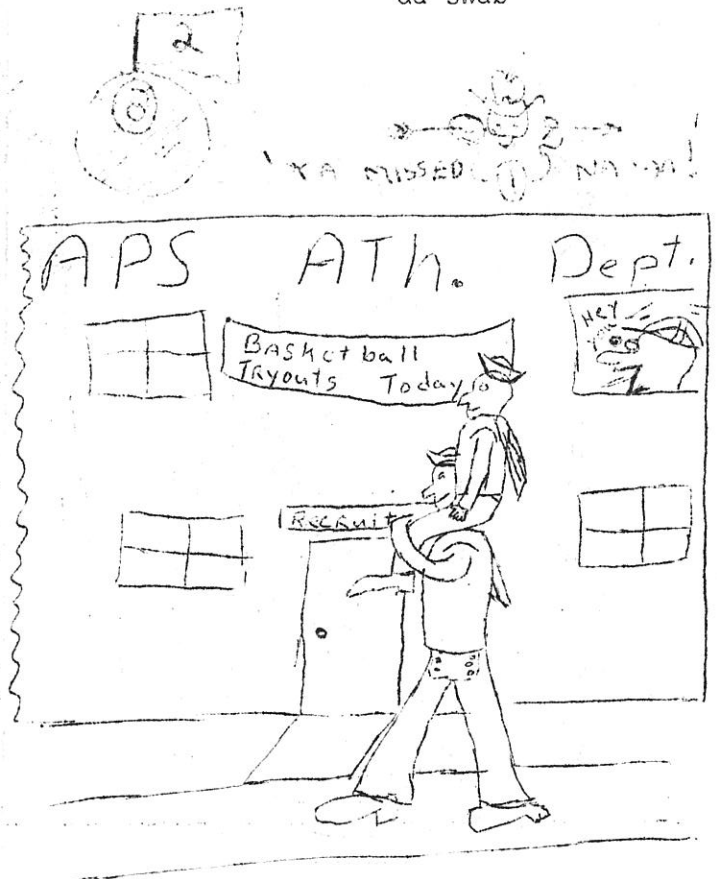 da swab
2
YA MISSED
1
APS ATh. Dept.
Hey
BASket ball
TRyouts Today
RECRUIT